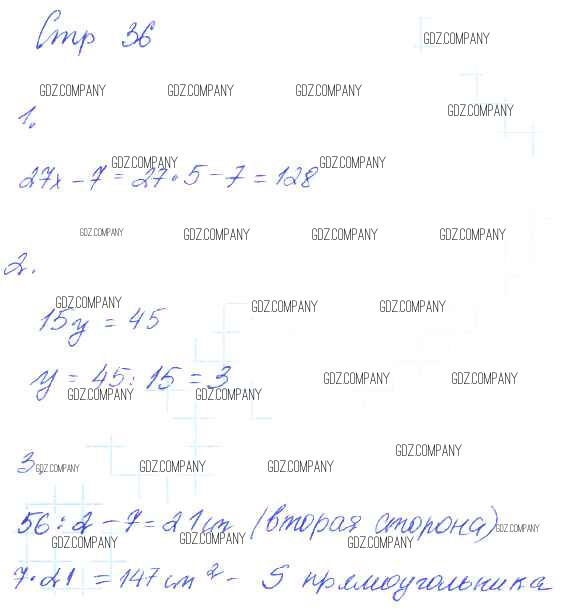 Стр 36
GDZ.COMPANY
GDZ.COMPANY GDZ.COMPANY GDZ.COMPANY
1.
GDZ.COMPANY
GDZ.COMPANY GDZ.COMPANY
27x - 7 = 27 • 5 - 7 = 128
GDZ.COMPANY GDZ.COMPANY GDZ.COMPANY GDZ.COMPANY
2.
GDZ.COMPANY GDZ.COMPANY GDZ.COMPANY
15y = 45
y = 45 : 15 = 3
GDZ.COMPANY GDZ.COMPANY
GDZ.COMPANY GDZ.COMPANY
GDZ.COMPANY
3.
GDZ.COMPANY GDZ.COMPANY GDZ.COMPANY
56 : 2 - 7 = 21 см (вторая сторона)
GDZ.COMPANY
GDZ.COMPANY GDZ.COMPANY GDZ.COMPANY
7 • 21 = 147 см² - S прямоугольника